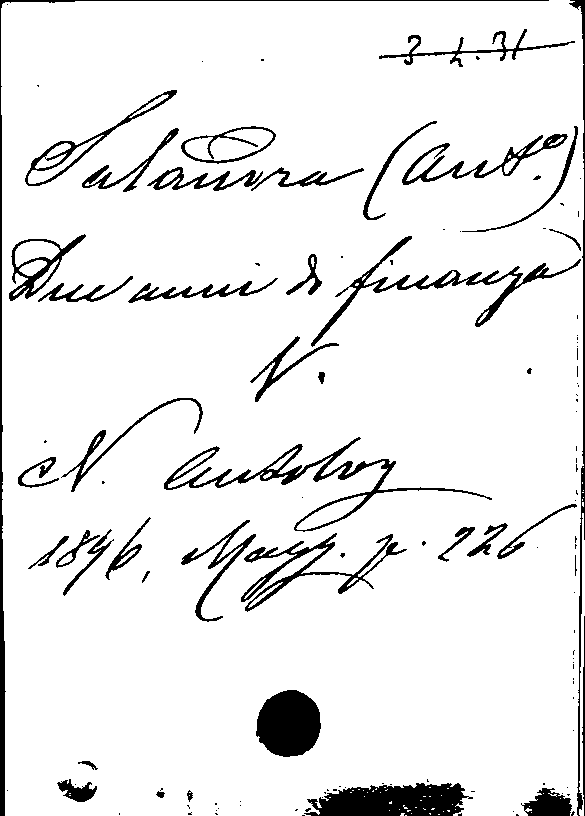 3 4.31
Salandra (Ant.º)
Due anni di finanza
V.
N. Antolog
1896, Magg. p. 226